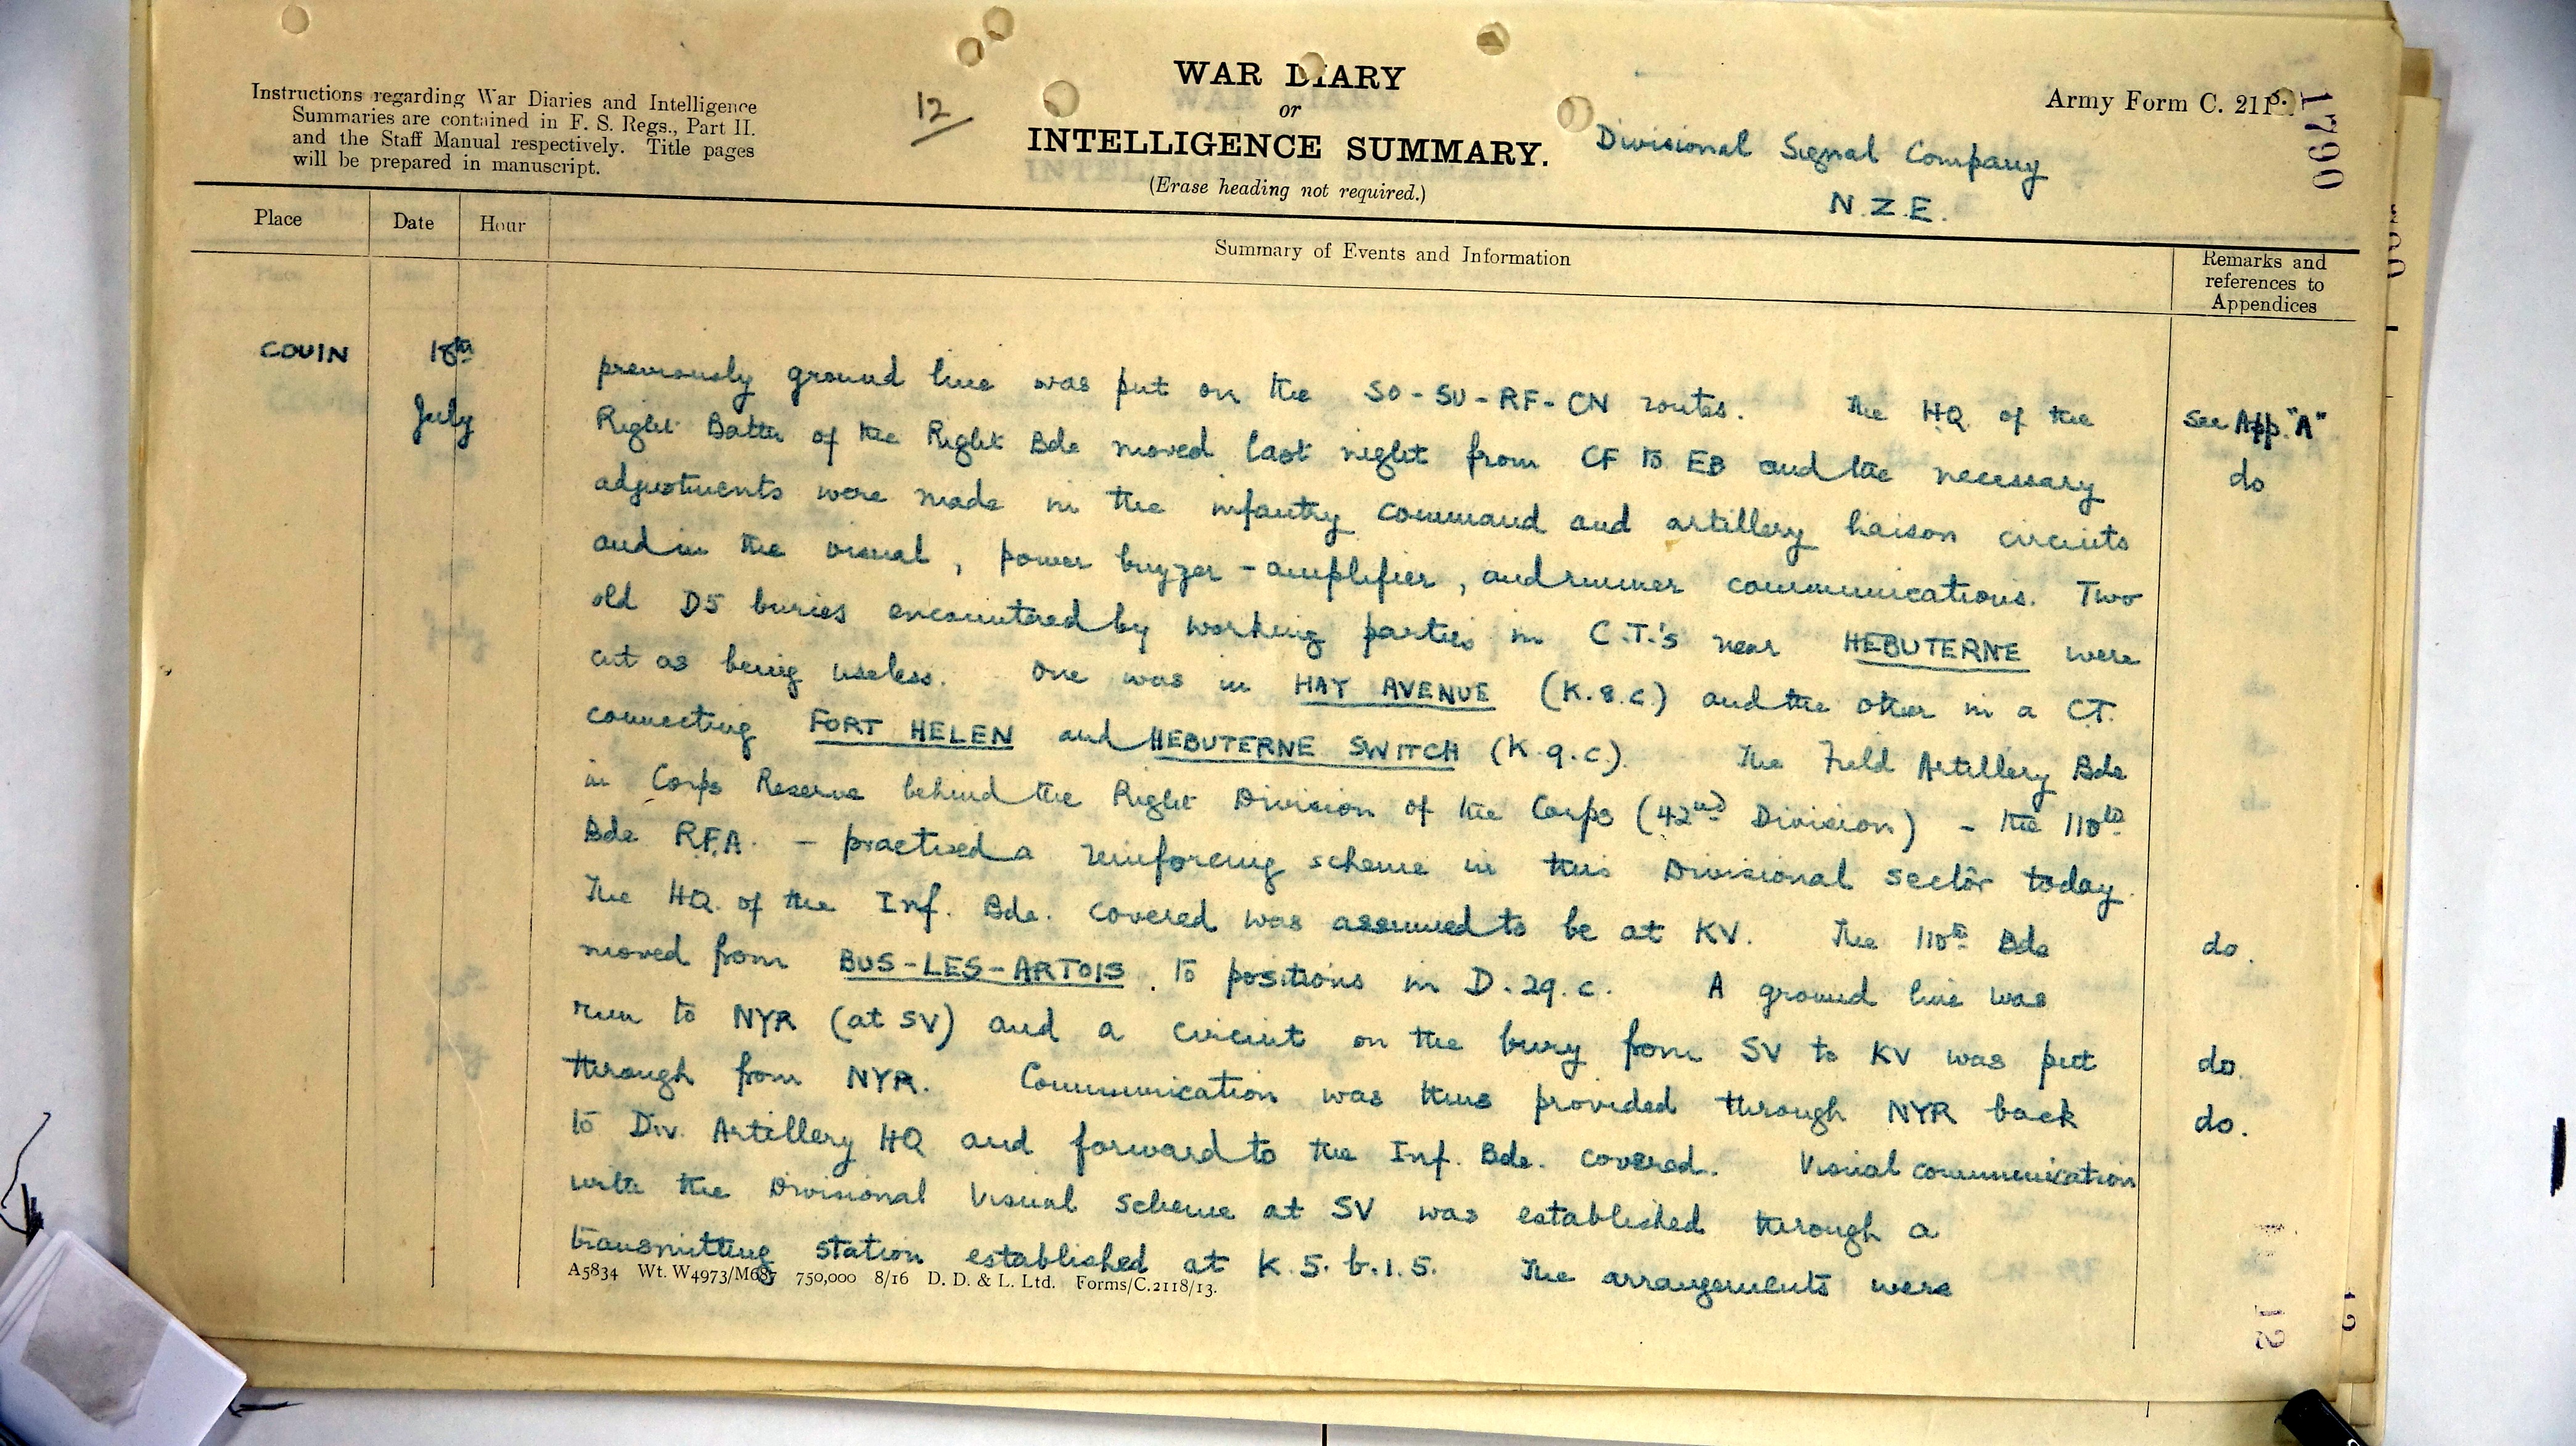 Instructions regarding War Diaries and Intelligence
Summaries are contained in F. S. Regs., Part II.
and the Staff Manual respectively. Title pages
will be prepared in manuscript.
12
WAR DIARY
or
INTELLIGENCE SUMMARY.
(Erase heading not required.)
Army Form C. 211
1790
Divisional Signal Company
N.Z.E.
Place
Date
Hour
Summary of Events and Information
Remarks and
references to
Appendices
COUIN
18th
July
previously ground line was put on the SO-SU-RF-CN routes. The HQ of the
Right Battn of the Right Bde moved last night from CF to EB and the necessary
adjustments were made in the infantry command and artillery liaison circuits
and in the visual, power buzzer - amplifier, and runner communications. Two
old D5 buries encountered by working parties in C.T.'s near HEBUTERNE were
cut as being useless. One was in HAY AVENUE (K.8.c.) and the other in a C.T.
connecting FORT HELEN and HEBUTERNE SWITCH (K.9.c.). The Field Artillery Bde
in Corps Reserve behind the Right Division of the Corps (42nd Division) - the 110th
Bde R.F.A. - practised a reinforcing scheme in this Divisional sector today.
The HQ. of the Inf. Bde. covered was assumed to be at KV. The 110th Bde
moved from BUS-LES-ARTOIS to positions in D.29.c. A ground line was
run to NYR (at SV) and a circuit on the bury from SV to KV was put
through from NYR. Communication was thus provided through NYR back
to Div. Artillery HQ and forward to the Inf. Bde. covered. Visual communication
with the Divisional Visual Scheme at SV was established through a
transmitting station established at K.5.b.1.5. The arrangements were
See App. "A"
do
do.
do.
do.
A5834 Wt. W4973/M687 750,000 8/16 D. D. & L. Ltd. Forms/C.2118/13.
12